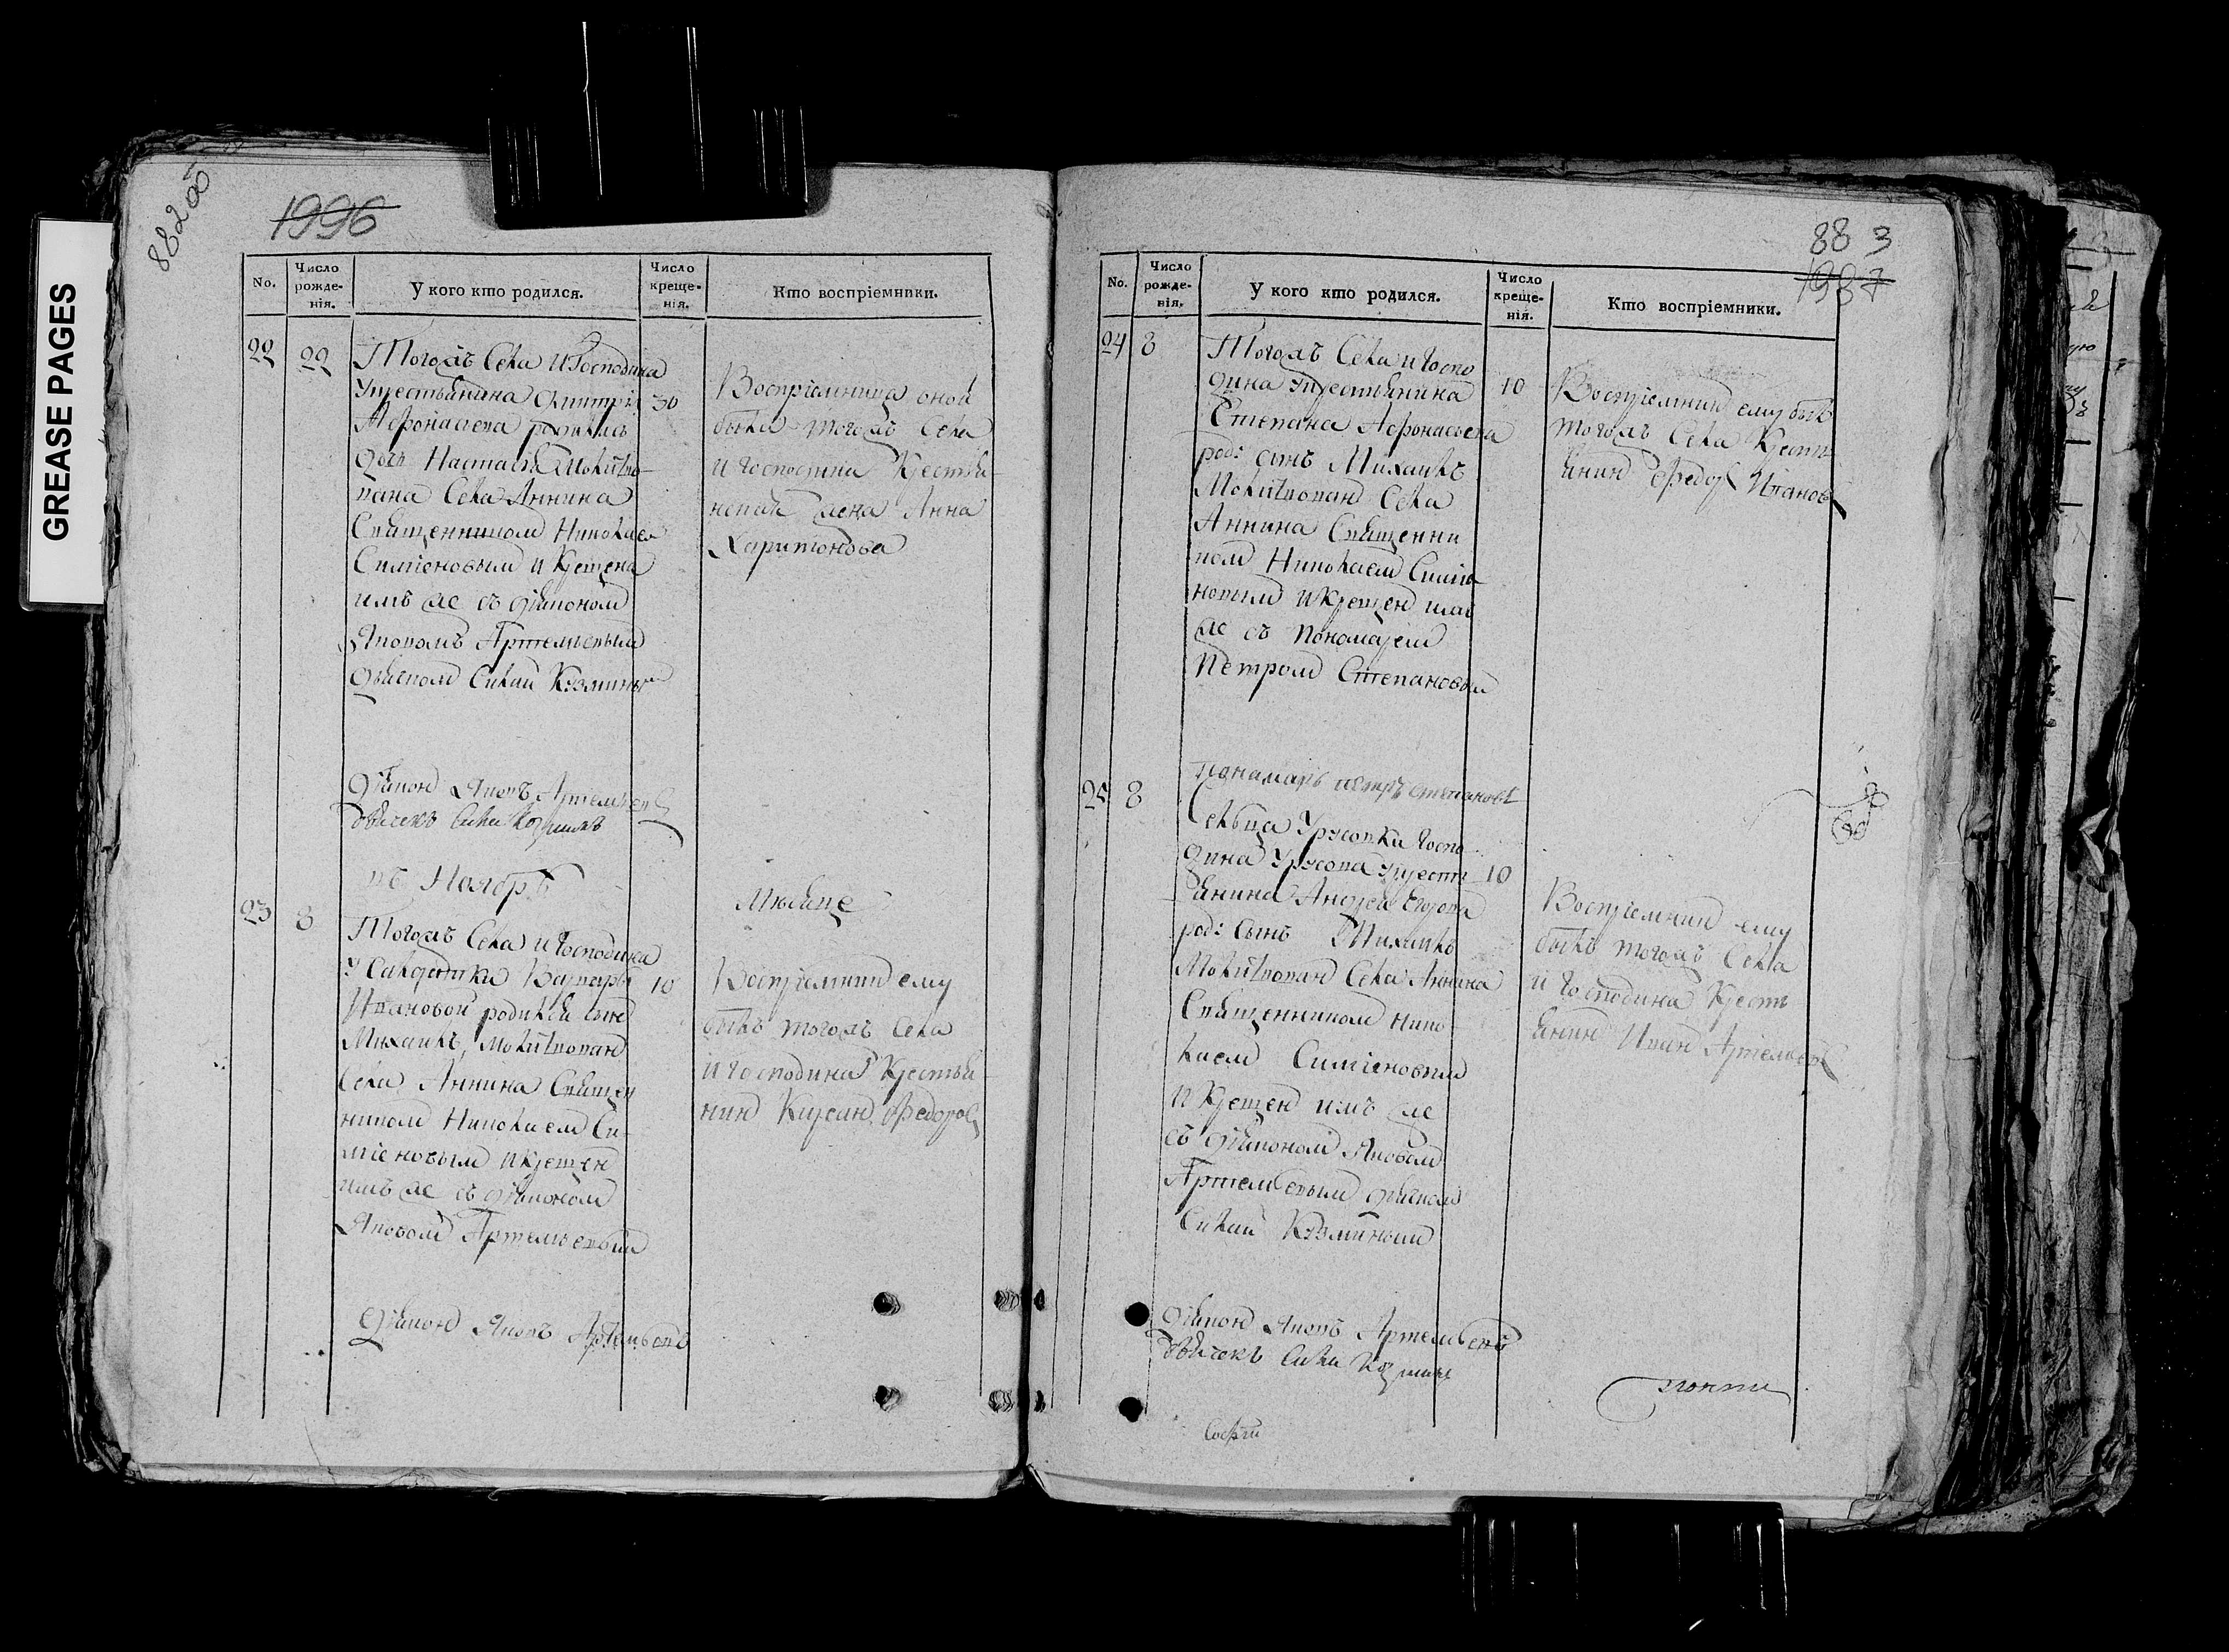 GREASE PAGES
882 об
1996
No.
Число рожде-нія.
У кого кто родился.
Число креще-нія.
Кто воспріемники.
22
22
Тогожъ Села и Господина
Дмитрія
30
Афонасьева родилась
дочь Настасья Молитво-
вана Села Аннина
Священникомъ Николаем
Симіеновым и Крещена
имъ же съ дьякономъ
Яковомъ Артемьевым
дьячкомъ Силай Кузминым
Воспріемница оной
была тогожъ Села
и господина Крестья-
нскай жена Анна
Харитонова
Дьякон Яковъ Артемьевъ
дьячекъ Сила Козминъ
въ Ноябрѣ
Мѣсяце
23
8
Тогожъ Села и Господина
У Салдатки Варвары
10
Ивановой родился сын
Михаилъ, Молитвован
Села Аннина Священ
ником Николаем Си-
міеновым и крещен
имъ же съ дьяконом
Яковом Артемьевым
Воспріемник ему
былъ тогожъ Села
и господина Крестья-
нин Федоров
Дьякон Яковъ Артемьевъ
88 3
1997
No.
Число рожде-нія.
У кого кто родился.
Число креще-нія.
Кто воспріемники.
24
8
Тогожъ Села и Госпо
дина Укрестьянина
10
Степана Афонасьева
род: сынъ Михаилъ
Молитвован Села
Аннина Священни
ком Николаем Симіе
новым и Крещен им
же съ Пономарем
Петром Степановым
Воспріемник ему былъ
тогожъ Села Крестъ
янин Федор Иванов
понамарь петръ степановъ
25
8
Сельца Урусовки Госпо
дина Урусова Укресть
10
янина Андрея Егорова
род: Сынъ Михаилъ
Молитвован Села Аннина
Священником Нико
лаем Симіеновым
и Крещен имъ же
съ дьяконом Яковом
Артемьевым дьячком
Силай Кузминым
Воспріемник ему
былъ тогожъ Села
и Господина Кресть
янин Иван Артемьев
Дьякон Яковъ Артемьевъ
дьячекъ Сила Козминъ